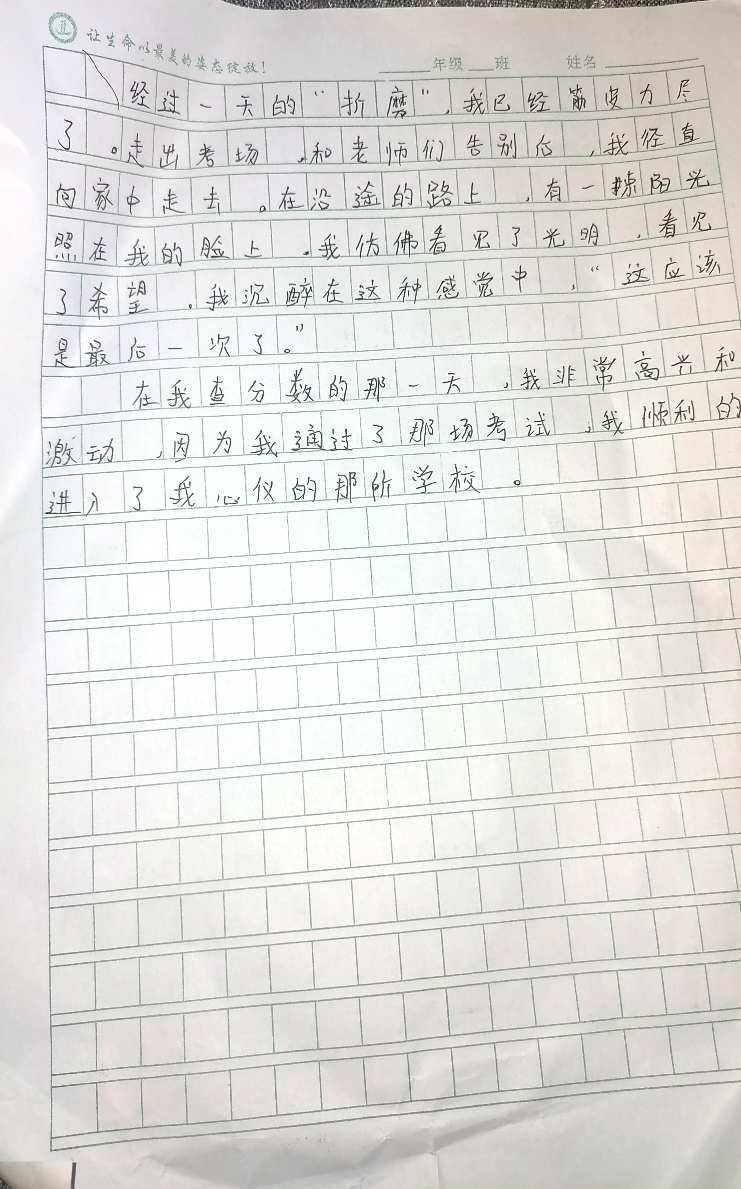 让生命以最美的姿态绽放！
____年级 ___班 姓名 ________
经过一天的“折磨”，我已经筋皮力尽
了。走出考场，和老师们告别后，我径直
向家中走去。在沿途的路上，有一辣阳光
照在我的脸上。我仿佛看见了光明，看见
了希望。我沉醉在这种感觉中，“这应该
是最后一次了。”
在我查分数的那一天，我非常高兴和
激动，因为我通过了那场考试，我顺利的
进入了我心仪的那所学校。